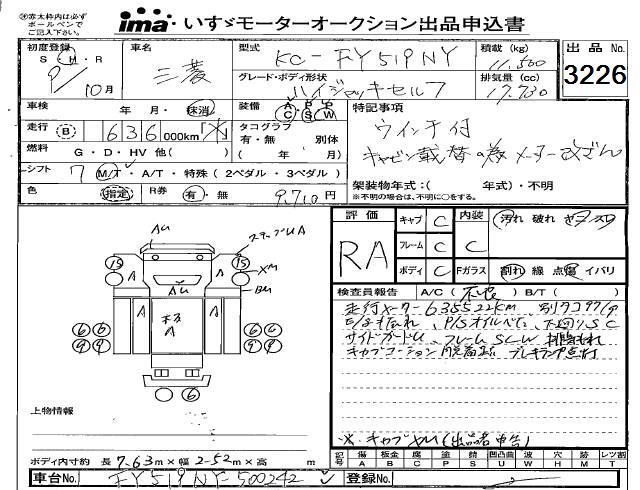 ㊟赤太枠内は必ず
ボールペンで
ご記入ください。
ima・いすゞモーターオークション出品申込書
初度登録
S・H・R
9/10月
車名
三菱
型式
KC-FY519NY
積載 (kg)
11,500
出品No.
3226
グレード・ボディ形状
ハイジャッキセルフ
排気量 (cc)
17,730
車検
年 月・抹消
装備
A・P・P
C・S・W
特記事項
ウインチ付
キャビン載替の為メーター改ざん
走行
B
636000km
タコグラフ
有・無 別体
( 年 月)
燃料
G・D・HV 他( )
シフト
7 M/T・A/T・特殊(2ペダル・3ペダル)
架装物年式:( 年式)・不明
※不明の場合は、不明に○をする。
色
指定
R券
有・無
9,710円
評価
RA
キャブ C
フレーム C
ボディ C
内装
C
Fガラス
汚れ 破れ ヤブスレ
割れ 線 点傷 イバリ
検査員報告
A/C(不良) B/T( )
走行メーター635522KM、別タコグラフ
E/gもれ、P/Sオイルべた、下回りSC
サイドガードU、フレームSCW
ブレーキランプ点灯
※キャブヤU(出品者申告)
AU
ステップUA
XM
BM
15
15
A
A
AU
A
A
木
A
6
6
9
9
6
6
9
9
6
上物情報
ボディ内寸約 長 7.63m×幅 2.52m×高 m
記号
傷 板金 腐 塗 錆 凹凸曲 波 穴 跡 埋 滅 レツ 割
A B C P S U W H X M G R T
車台No.
FY519NY-500242
登録No.